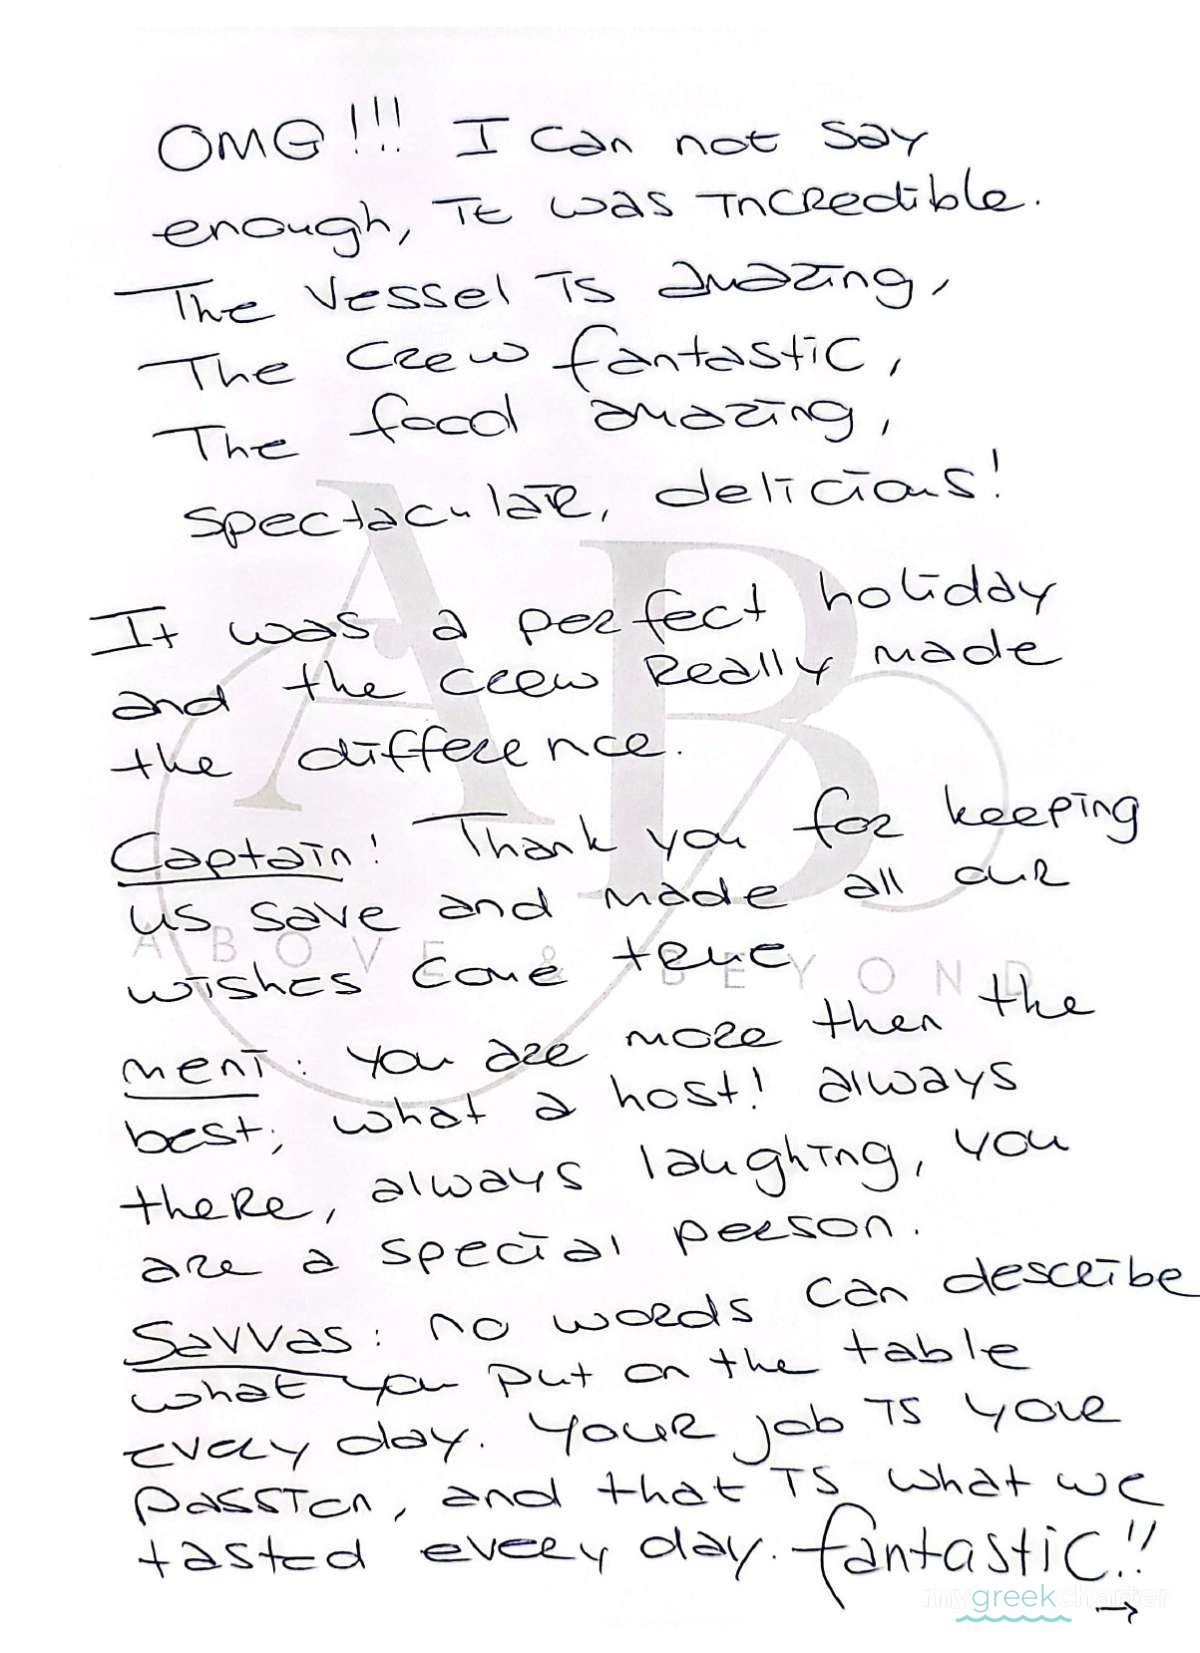 OMG!!! I can not say
enough, It was Incredible.
The Vessel Is amazing,
The Crew fantastic,
The food amazing,
spectaculair, delicious!
It was a perfect holiday
and the crew Really made
the difference.
Captain! Thank you for keeping
us save and made all our
wishes come true
meni: you are more then the
best, what a host! always
there, always laughing, you
are a special person.
Savvas: no words can describe
what you put on the table
every day. Your job Is your
passion, and that Is what we
tasted every day. fantastic!!
→
AB
ABOVE & BEYOND
mygreekcharter